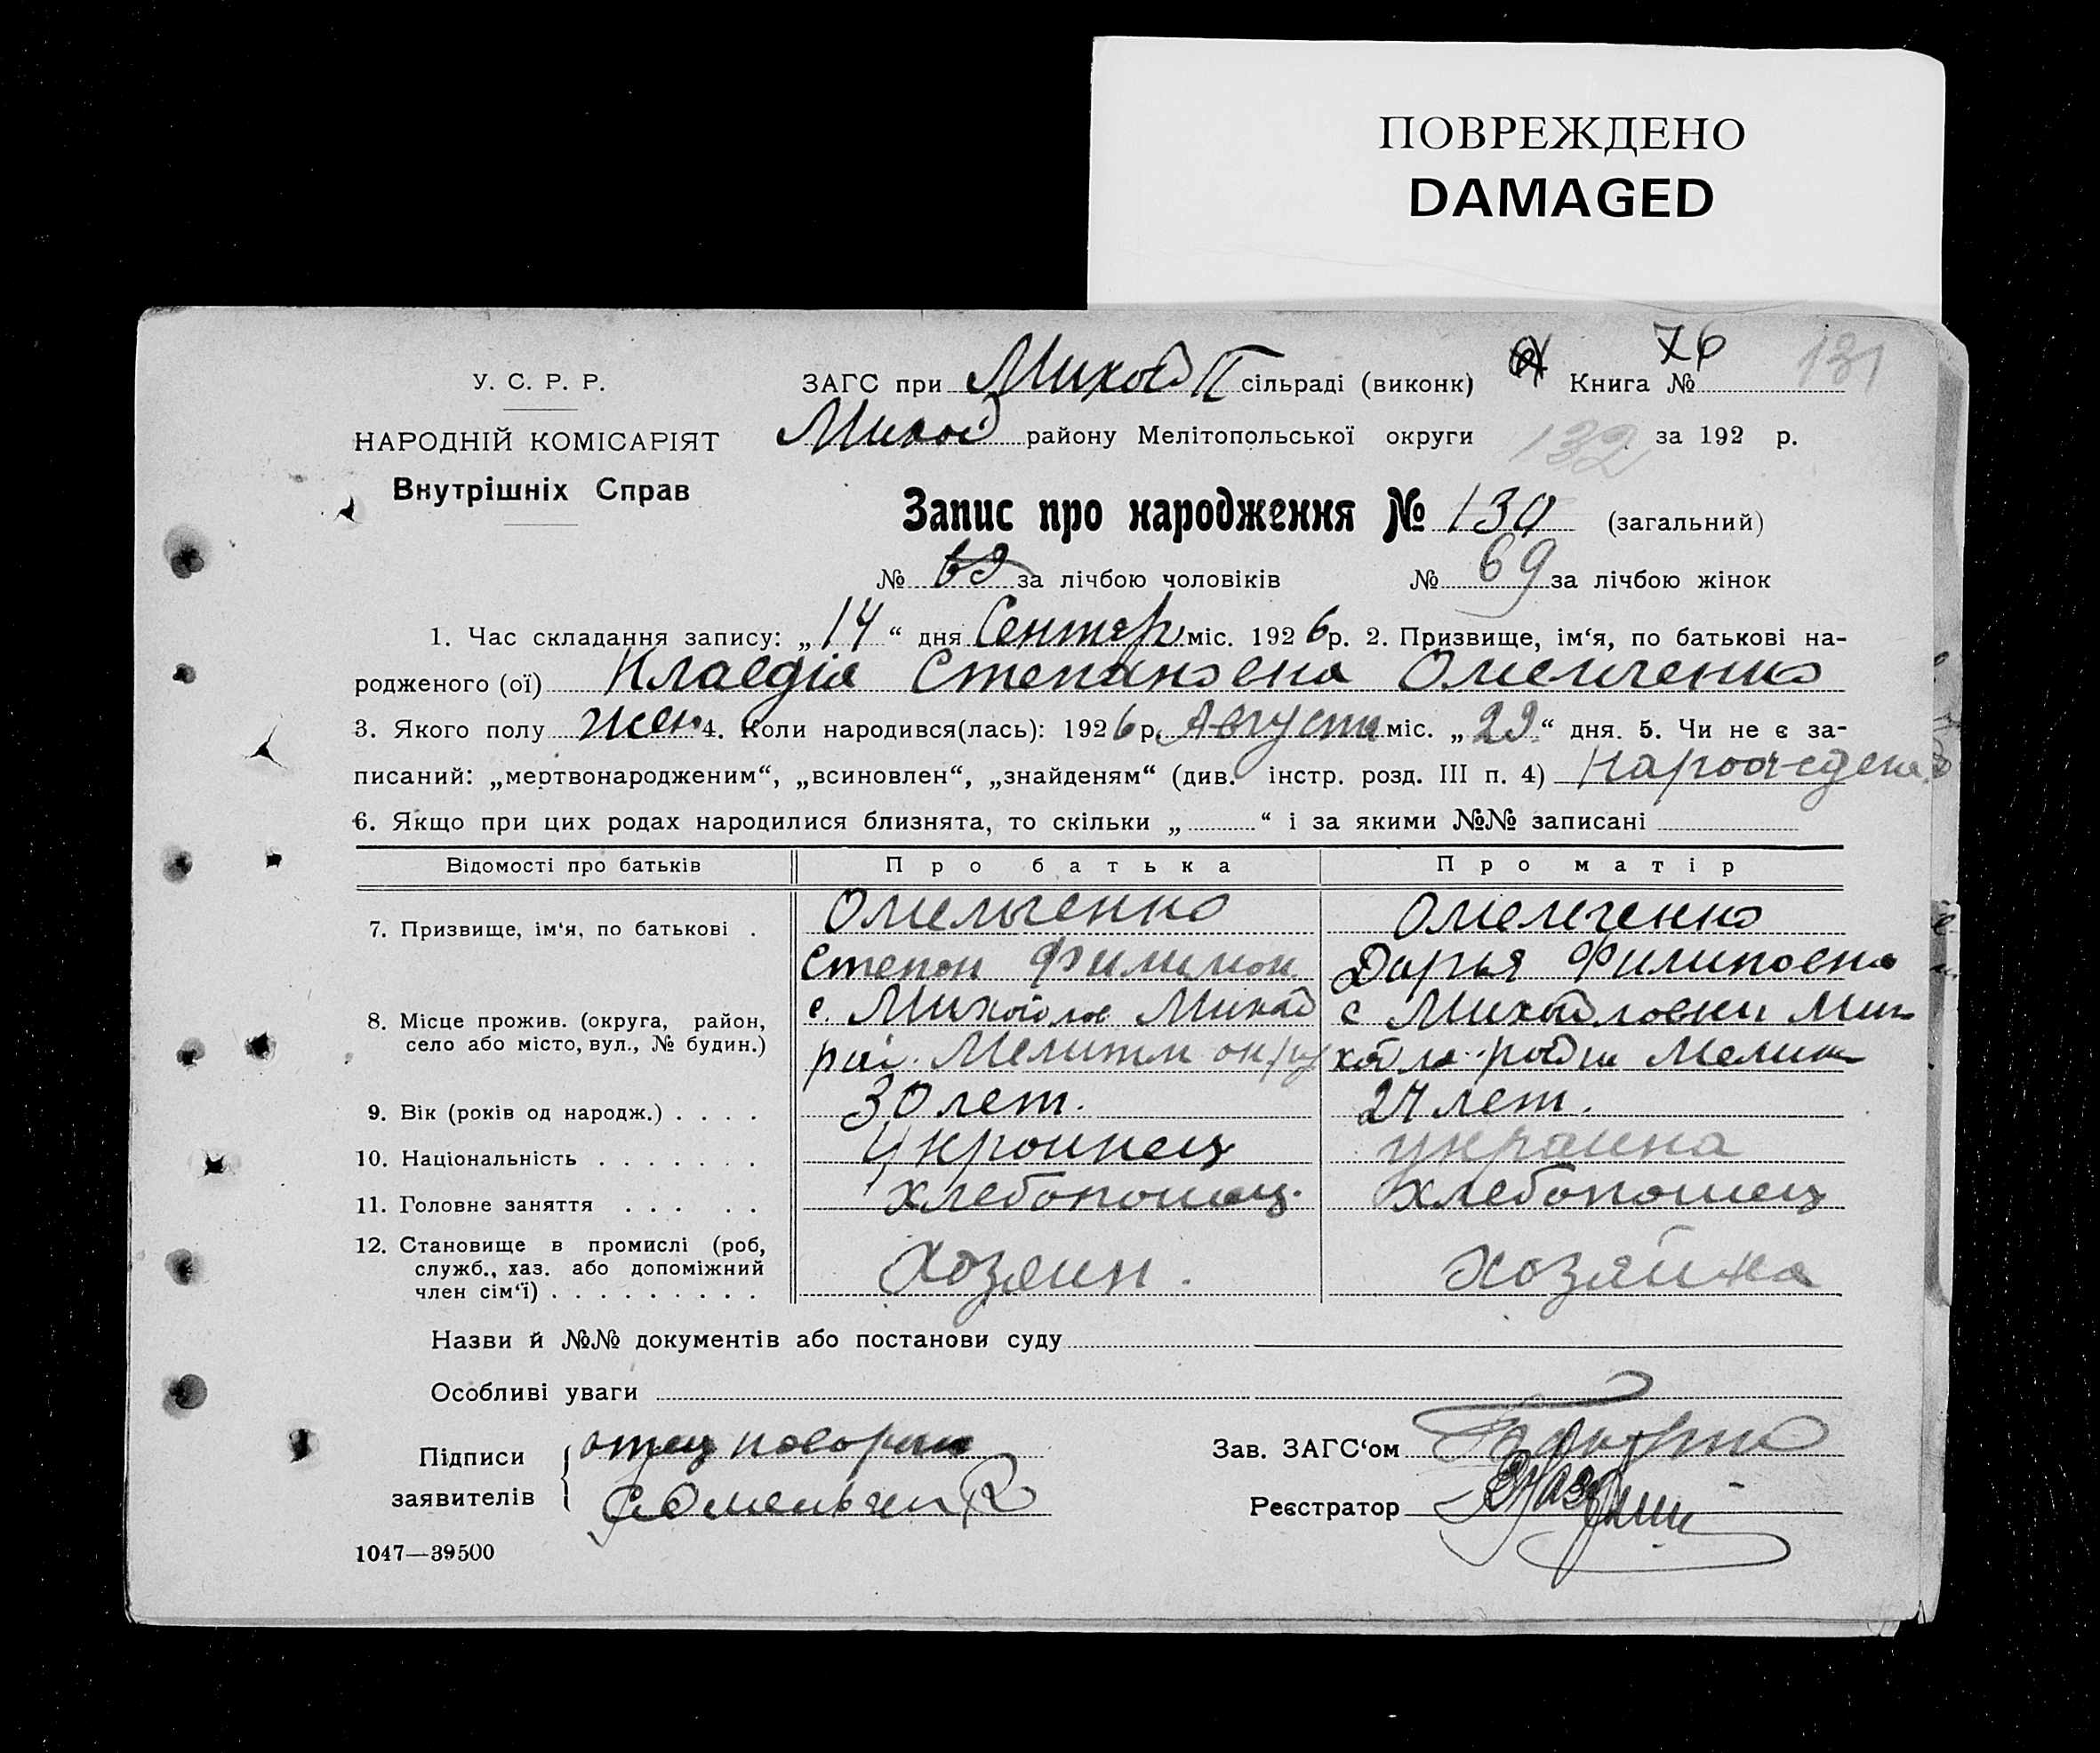 ПОВРЕЖДЕНО
DAMAGED
У. С. Р. Р.
НАРОДНІЙ КОМІСАРІЯТ
Внутрішніх Справ
ЗАГС при Михай II сільраді (виконк) Книга № 76 131
Михай району Мелітопольської округи 132 за 192 р.
Запис про народження № 130 (загальний)
№ за лічбою чоловіків № 69 за лічбою жінок
1. Час складання запису: „14“ дня Сентяр міс. 1926 р. 2. Призвище, ім‘я, по батькові на-
родженого (ої) Клавдія Степановна Омельченко
3. Якого полу жен 4. Коли народився(лась): 1926 р. Августа міс. „22“ дня. 5. Чи не є за-
писаний: „мертвонародженим“, „всиновлен“, „знайденям“ (див. інстр. розд. III п. 4)
6. Якщо при цих родах народилися близнята, то скільки „ “ і за якими №№ записані
Відомості про батьків Про батька Про матір
7. Призвище, ім‘я, по батькові . Омельченко Омельченко
Степан Филимон Дарья Филиповна
8. Місце прожив. (округа, район, с. Михайлов Михай с Михайловки Ми
село або місто, вул., № будин.) рай. Мелитп округ хайла района Мелит
9. Вік (років од народж.) . . . . 30 лет. 24 лет.
10. Національність . . . . . . . Украинец украина
11. Головне заняття . . . . . хлебопашец. хлебопашец
12. Становище в промислі (роб,
служб., хаз. або допоміжний Хозяин. хозяйка
член сім‘ї) . . . . . . . . .
Назви й №№ документів або постанови суду
Особливі уваги
Підписи отец Зав. ЗАГС‘ом
заявителів С Омельчен Реєстратор
1047—39500